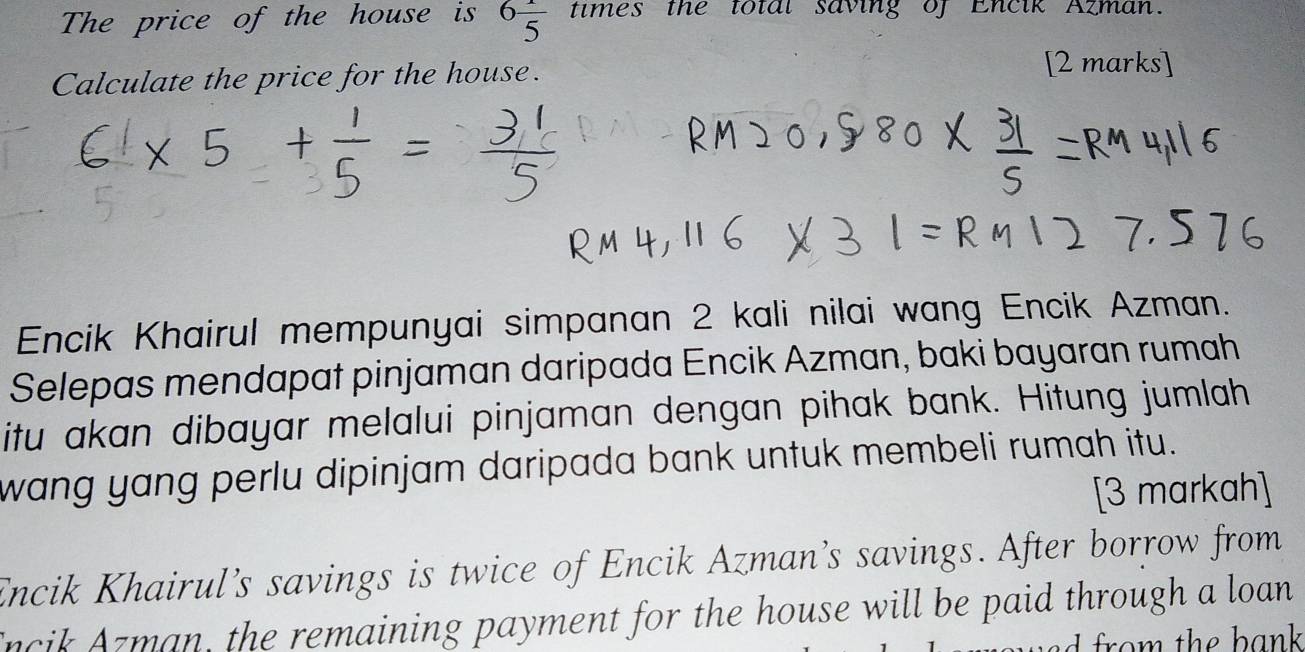 The price of the house is 6 1/5 times the total saving of Encik Azman.
Calculate the price for the house. [2 marks]
6 × 5 + 1/5 = 31/5 RM 20,580 × 31/5 = RM 4,116
RM 4,116 × 31 = RM 127.576
Encik Khairul mempunyai simpanan 2 kali nilai wang Encik Azman.
Selepas mendapat pinjaman daripada Encik Azman, baki bayaran rumah
itu akan dibayar melalui pinjaman dengan pihak bank. Hitung jumlah
wang yang perlu dipinjam daripada bank untuk membeli rumah itu.
[3 markah]
Encik Khairul's savings is twice of Encik Azman's savings. After borrow from
Encik Azman, the remaining payment for the house will be paid through a loan
from the bank